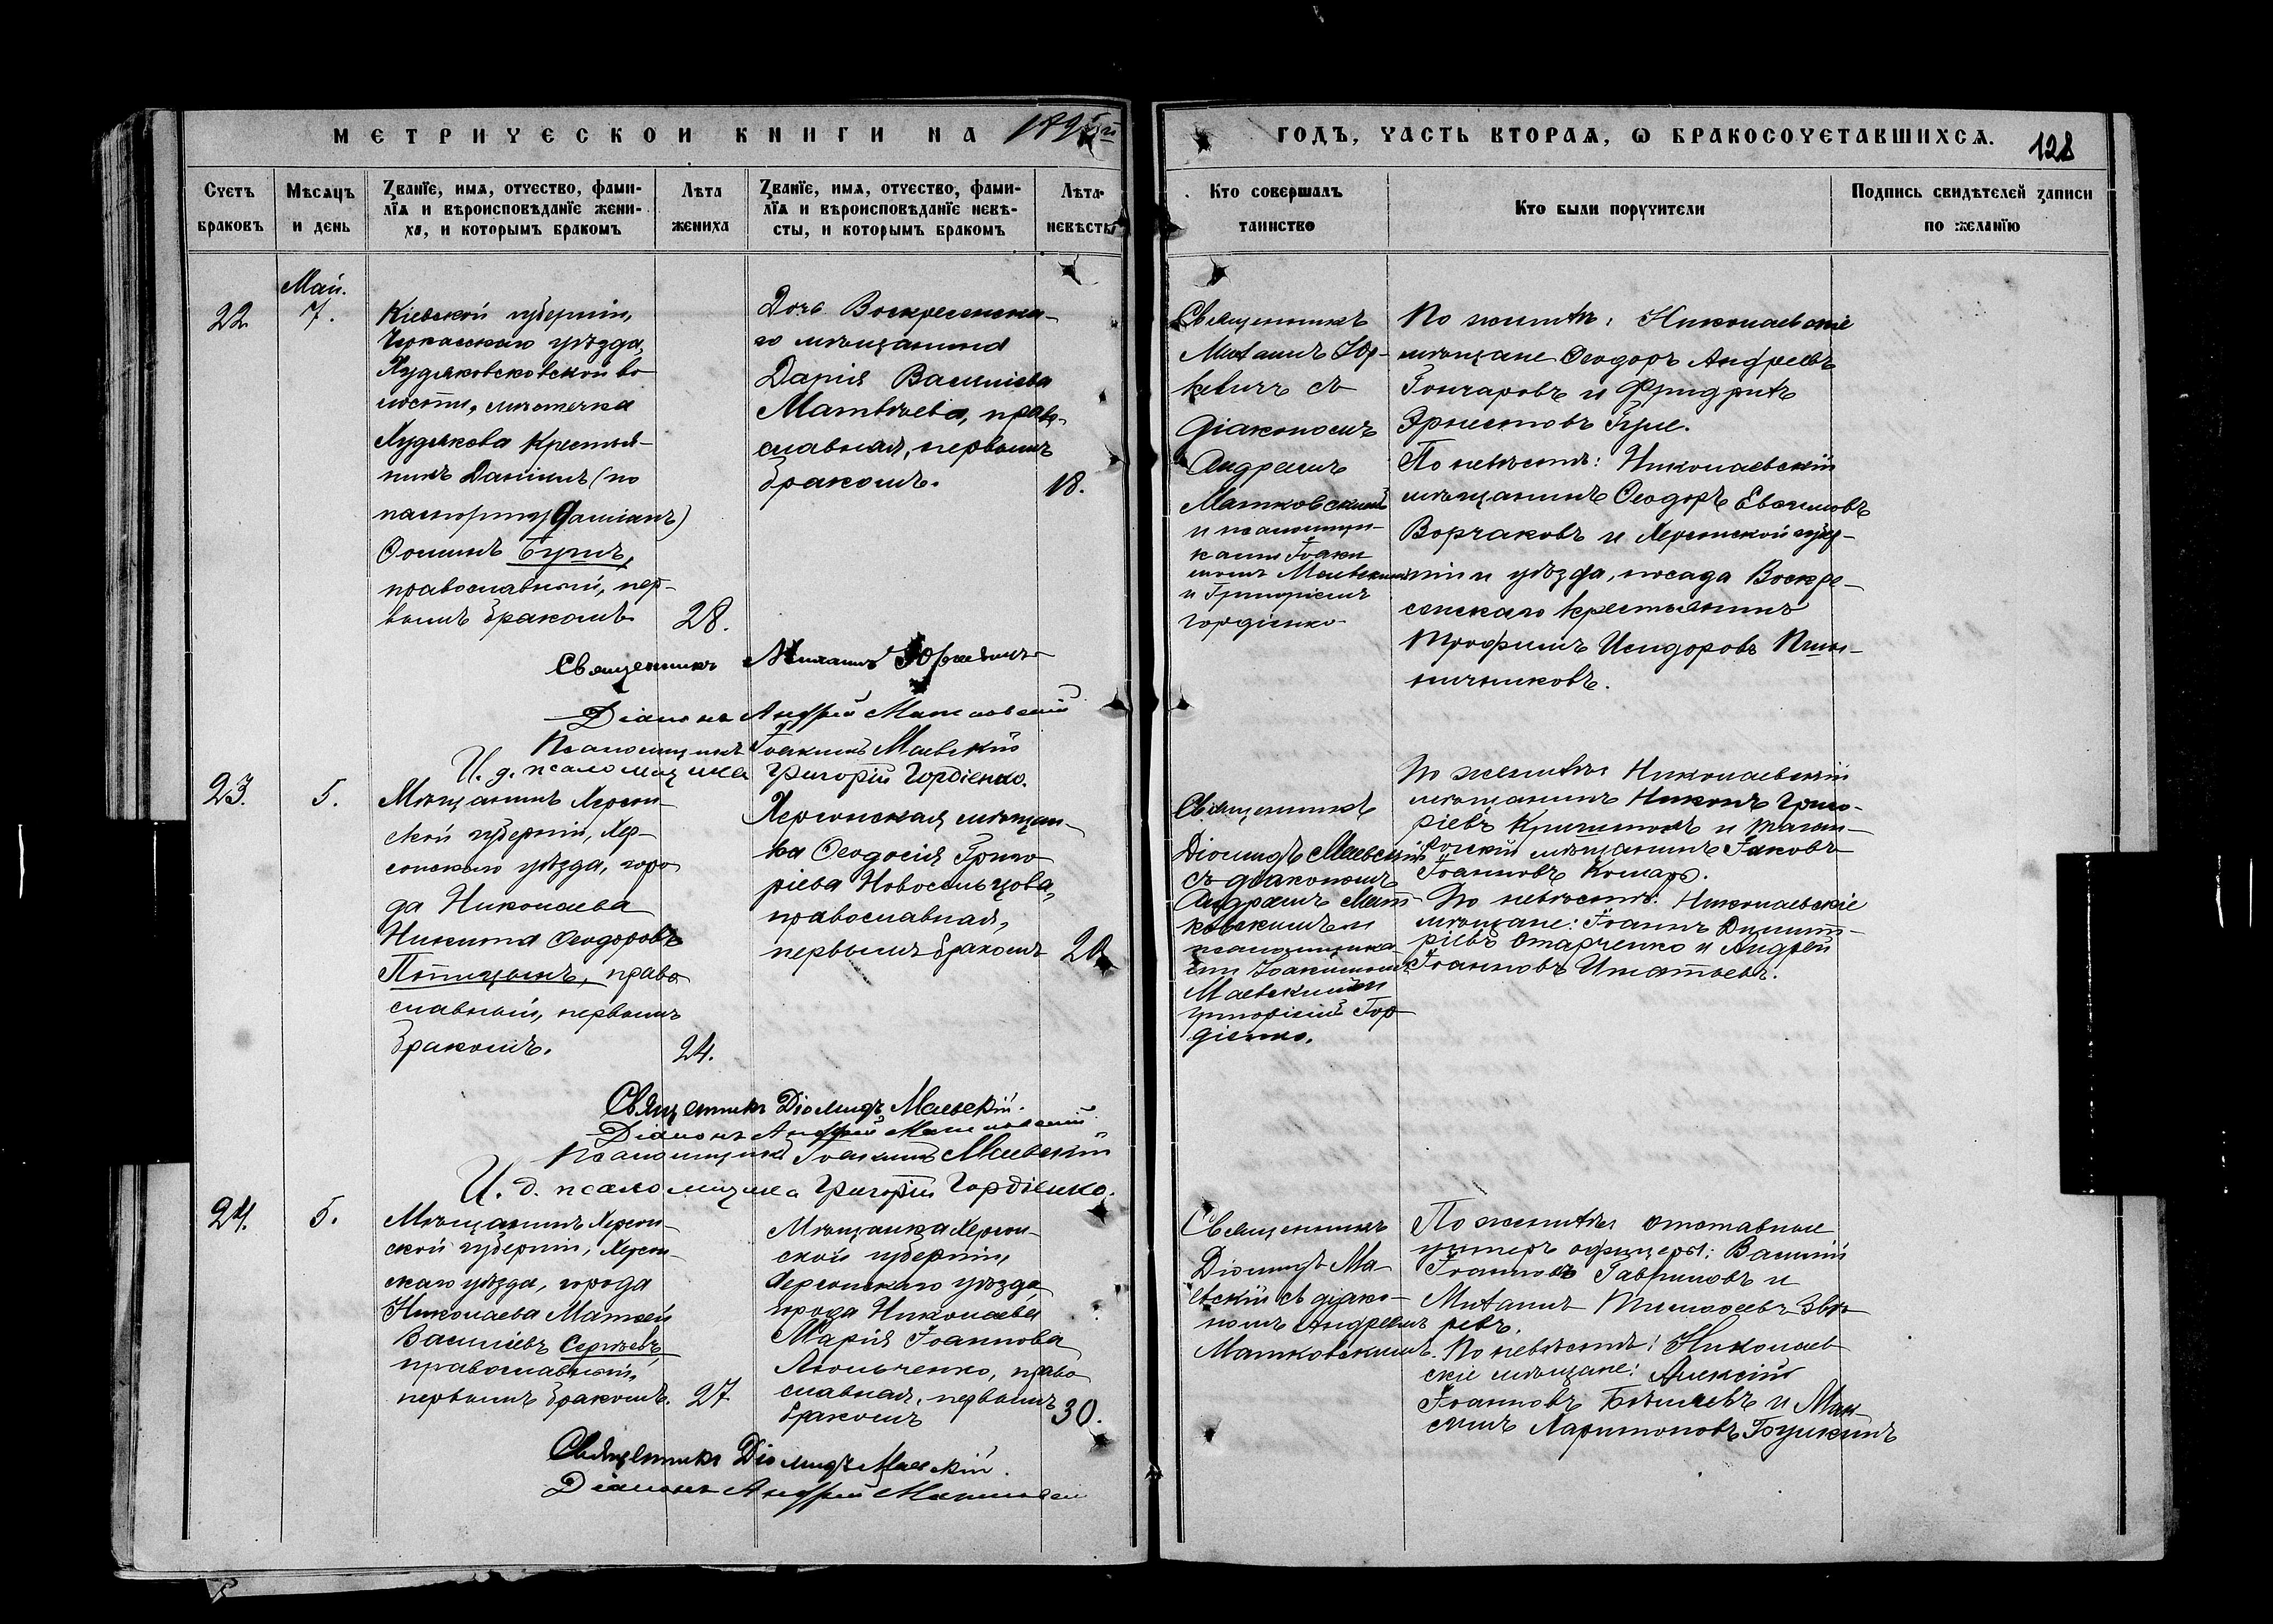 МЕТРИЧЕСКОЙ КНИГИ НА 1895й
ГОДЪ, ЧАСТЬ ВТОРАЯ, Ѡ БРАКОСОЧЕТАВШИХСЯ.
128
Счетъ браковъ
Мѣсяцъ и день
Званїе, имя, отчество, фами-
лїя и вѣроисповѣданїе жени-
ха, и которымъ бракомъ
Лѣта
жениха
Званїе, имя, отчество, фами-
лїя и вѣроисповѣданїе невѣ-
сты, и которымъ бракомъ
Лѣта
невѣсты
Кто совершалъ
таинство
Кто были поручители
Подпись свидѣтелей записи
по желанїю
22.
Май.
7.
Кіевской губерніи,
Черкасскаго уѣзда,
Худяковсковской во
лости, мѣстечка
Худякова Крестья-
нинъ Даніилъ (по
паспорту Даміанъ)
Осиинъ Бущъ,
православный, пер-
вымъ бракомъ
28.
Дочь Воскресенска-
го мѣщанина
Дарія Васильева
Матвѣева, право-
славная, первымъ
бракомъ.
18.
Священникъ
Михаилъ Юр-
кевичъ съ
діакономъ
Андреемъ
Матковскимъ
и псаломщи-
ками Іоаки
момъ Маевскимъ
и Григоріемъ
Гордіенко
По женихѣ: Николаевскіе
мѣщане Ѳеодоръ Андреевъ
Гончаровъ и Фридрихъ
Эрнестовъ
По невѣстѣ: Николаевскій
мѣщанинъ Ѳеодоръ Евѳимовъ
Ворчаковъ и Херсонской губер-
ніи и уѣзда, посада Воскре-
сенскаго крестьянинъ
Трофимъ Исидоровъ Пшен-
ничниковъ.
Священникъ Михаилъ Юркевичъ
Діаконъ Андрей Матковскій
Псаломщикъ Іоакимъ Маевскій
И. д. псаломщика Григорій Гордіенко.
23.
5.
Мѣщанинъ Херсон-
ской губерніи, Хер-
сонскаго уѣзда, горо
да Николаева
Никита Ѳеодоровъ
Птицынъ, право
славный, первымъ
бракомъ.
24.
Херсонская мѣщан-
ка Ѳеодосія Григо
ріева Новосельцова,
православная,
первымъ бракомъ
Священникъ
Діомидъ Маевскій
съ діакономъ
Андреемъ Мат-
ковскимъ и
псаломщика-
ми Іоакимомъ
Маевскимъ и
Григоріемъ Гор-
діенко.
По женихѣ: Николаевскій
мѣщанинъ Никонъ Григо-
ріевъ и Таган-
рогскій мѣщанинъ Іаковъ
Іоанновъ Комаръ.
По невѣстѣ: Николаевскіе
мѣщане: Іоаннъ Димит-
ріевъ Старченко и Андрей
Іоанновъ Игнатьевъ.
Священникъ Діомидъ Маевскій.
Діаконъ Андрей Матковскій
Псаломщикъ Іоакимъ Маевскій
И. д. псаломщика Григорій Гордіенко.
24.
5.
Мѣщанинъ Херсон-
ской губерніи, Херсон-
скаго уѣзда, города
Николаева Матѳей
Василіевъ Сергѣевъ,
православный,
первымъ бракомъ.
27
Мѣщанка Херсон-
ской губерніи,
Херсонскаго уѣзда,
города Николаева
Марія Іоаннова
право
славная, первымъ
бракомъ
30.
Священникъ
Діомидъ Ма-
евскій съ діако-
номъ Андреемъ
Матковскимъ.
По женихѣ: отставные
унтеръ офицеры: Василій
Іоанновъ Гавриловъ и
Михаилъ Тимоѳеевъ Звѣ-
ревъ.
По невѣстѣ: Николаев
скіе мѣщане: Алексій
Іоанновъ Бѣляевъ и Мак-
симъ Харитоновъ Бушкинъ
Священникъ Діомидъ Маевскій.
Діаконъ Андрей Матковскій